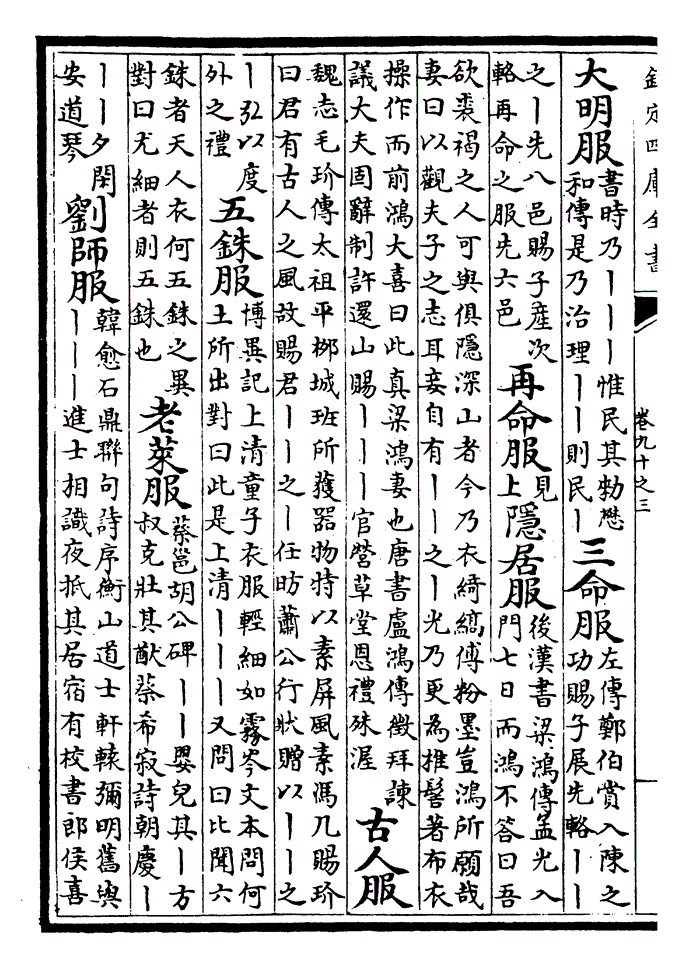 欽定四庫全書
卷九十之三
大明服
書時乃丨丨丨惟民其勑懋
和傳是乃治理丨丨則民丨
三命服
左傳鄭伯賞入陳之
功賜子展先輅丨丨
之丨先八邑賜子產次
輅再命之服先六邑
再命服
見
上
隱居服
後漢書梁鴻傳孟光入
門七日而鴻不答曰吾
欲裘褐之人可與俱隱深山者今乃衣綺縞傅粉墨豈鴻所願哉
妻曰以觀夫子之志耳妾自有丨丨之丨光乃更為推髻著布衣
操作而前鴻大喜曰此真梁鴻妻也唐書盧鴻傳徵拜諫
議大夫固辭制許還山賜丨丨丨官營草堂恩禮殊渥
古人服
魏志毛玠傳太祖平栁城班所獲器物特以素屏風素馮几賜玠
曰君有古人之風故賜君丨丨之丨任昉蕭公行狀贈以丨丨之
丨弘以度
外之禮
五銖服
博異記上清童子衣服輕細如霧岑文本問何
土所出對曰此是上清丨丨丨又問曰比聞六
銖者天人衣何五銖之異
對曰尤細者則五銖也
老萊服
蔡邕胡公碑丨丨嬰兒其丨方
叔克壯其猷蔡希寂詩朝慶丨
丨丨夕閑
安道琴
劉師服
韓愈石鼎聯句詩序衡山道士軒轅彌明舊與
丨丨丨進士相識夜抵其居宿有校書郎侯喜